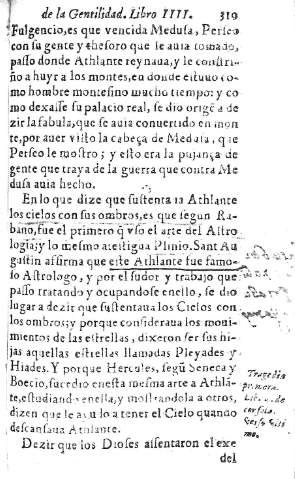 de la Gentilidad. Libro IIII. 319
Fulgencio, es que vencida Medusa, Perseo
con su gente y thesoro que se auia tomado,
passo donde Athlante reynaua, y le constri-
ño a huyr a los montes, en donde estuuo co-
mo hombre montesino mucho tiempo: y co
mo dexasse su palacio real, se dio origē a de
zir la fabula, que se auia conuertido en mon
te, por auer visto la cabeça de Medusa, que
Perseo le mostro; y esto era la pujança de
gente que traya de la guerra que contra Me
dusa auia hecho.
En lo que dize que sustenta ua Athlante
los cielos con sus ombros, es que segun Ra-
bano, fue el primero q̄ vso el arte del Astro
logia; y lo mesmo atestigua Plinio. Sant Au
gustin affirma que este Athlante fue famo-
so Astrologo, y por el sudor y trabajo que
passo tratando y ocupandose enello, se dio
lugar a dezir que sustentaua los Cielos con
los ombros; y porque consideraua los moui-
mientos de las estrellas, dixeron ser sus hi-
jas aquellas estrellas llamadas Pleyades y
Hiades. Y porque Hercules, segū Seneca y
Boecio, sucedio enesta mesma arte a Athlā-
te, estudiando enella, y mostrandola a otros,
dizen que le ayudo a tener el Cielo quando
descansaua Athlante.
Dezir que los Dioses assentaron el exe
del
Tragedia
primera.
Lib. de